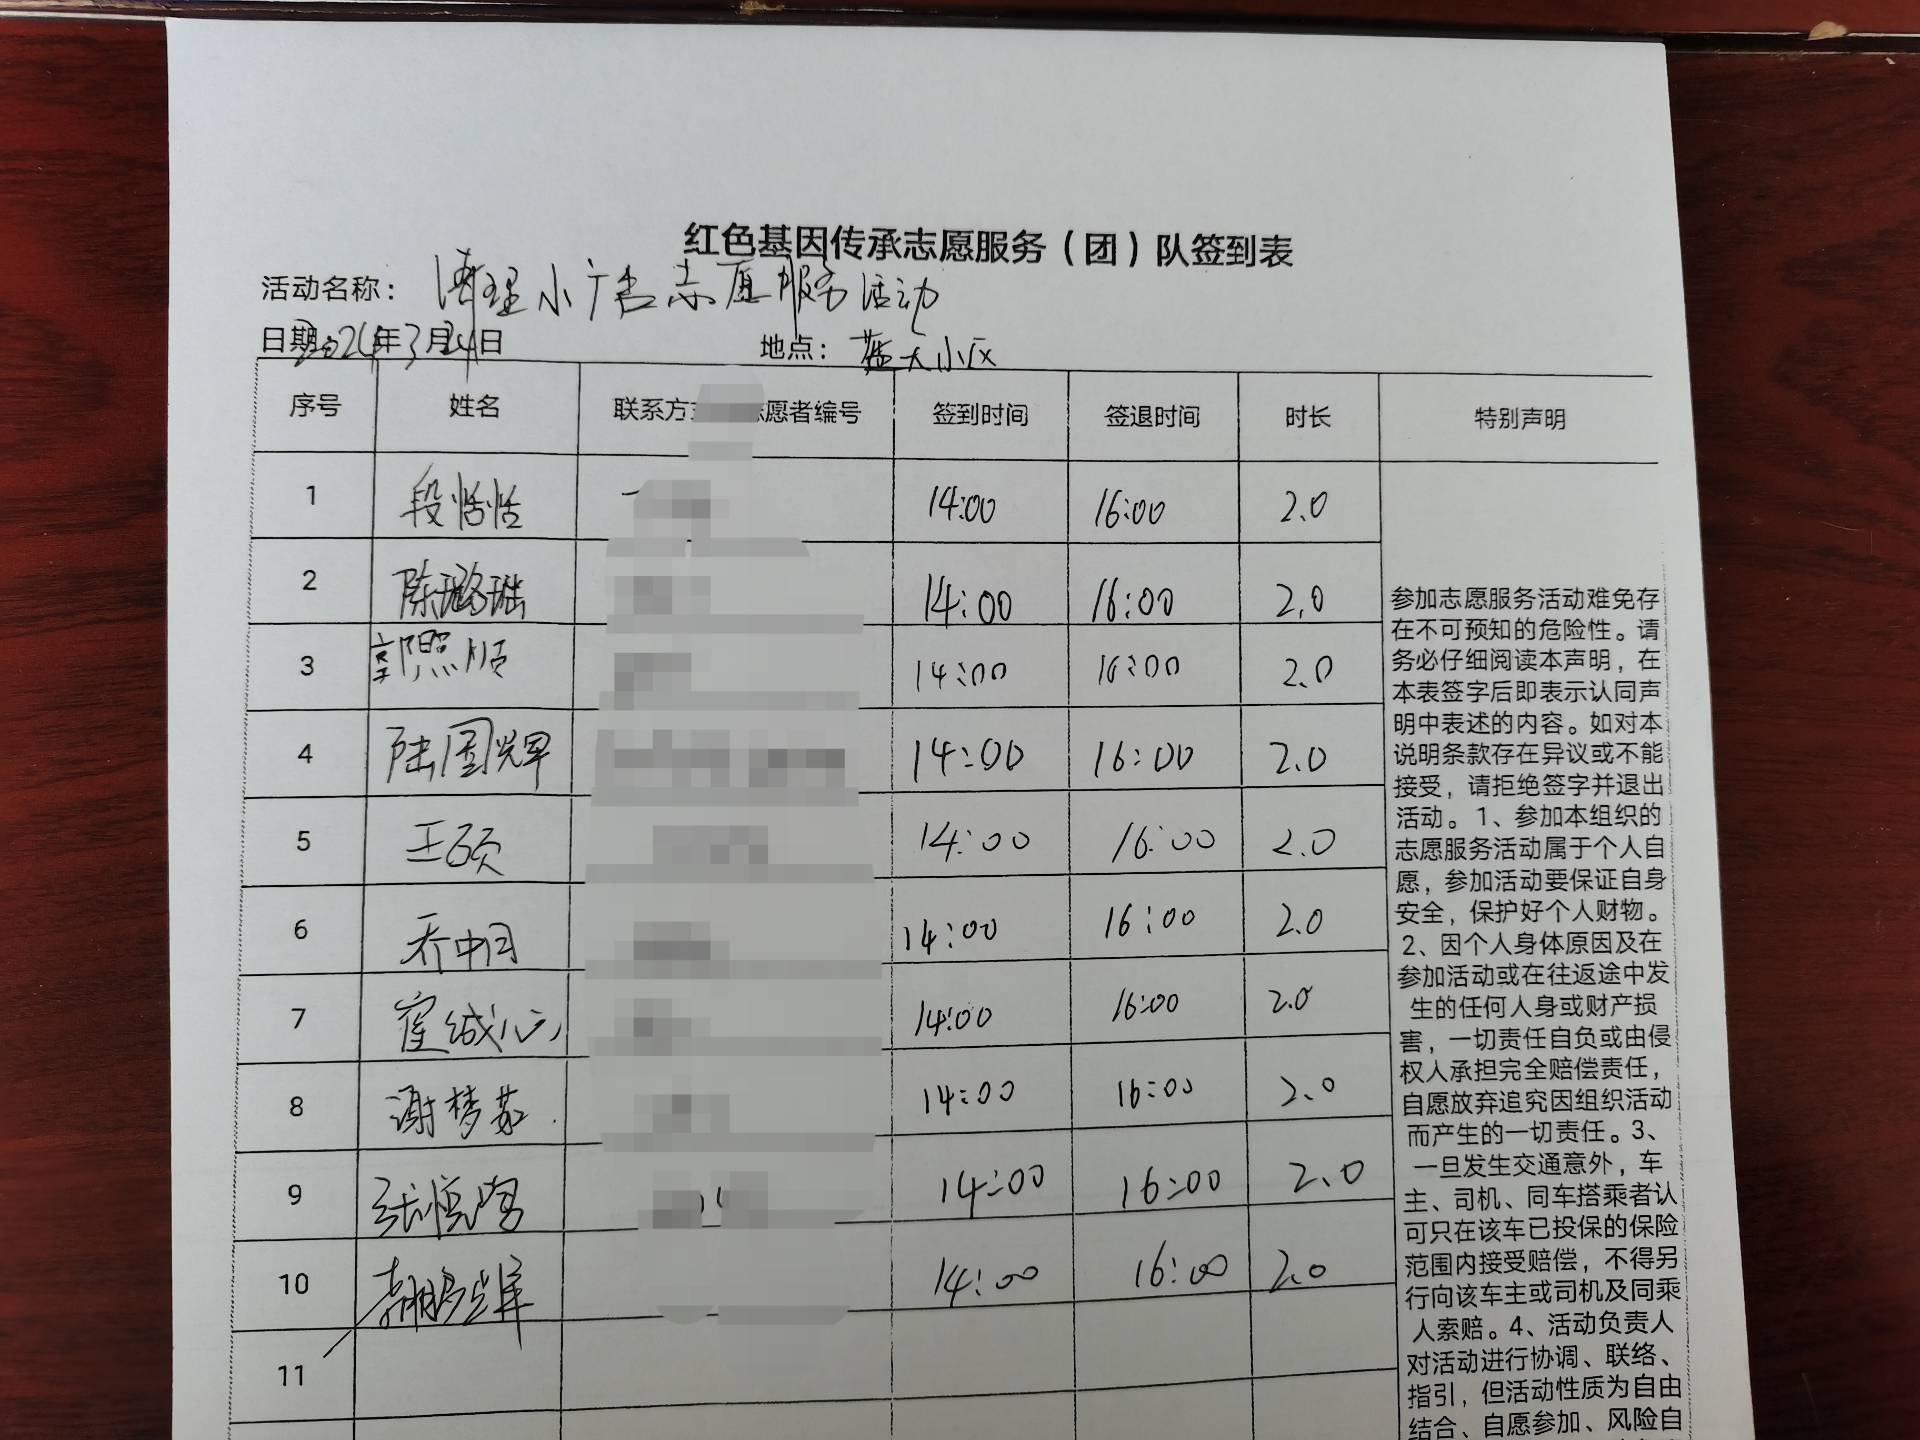 红色基因传承志愿服务（团）队签到表
活动名称： 清理小广告志愿服务活动
日期 年3月24日 地点： 蓝天小区
序号 姓名 联系方 愿者编号 签到时间 签退时间 时长 特别声明
1 段恬恬 14:00 16:00 2.0
2 陈璐瑶 14:00 16:00 2.0
3 郭照顺 14:00 16:00 2.0
4 陆国辉 14:00 16:00 2.0
5 王硕 14:00 16:00 2.0
6 乔中月 14:00 16:00 2.0
7 崔诚心 14:00 16:00 2.0
8 谢梦茹 14:00 16:00 2.0
9 张悦 14:00 16:00 2.0
10 14:00 16:00 2.0
11
参加志愿服务活动难免存
在不可预知的危险性。请
务必仔细阅读本声明，在
本表签字后即表示认同声
明中表述的内容。如对本
说明条款存在异议或不能
接受，请拒绝签字并退出
活动。1、参加本组织的
志愿服务活动属于个人自
愿，参加活动要保证自身
安全，保护好个人财物。
2、因个人身体原因及在
参加活动或在往返途中发
生的任何人身或财产损
害，一切责任自负或由侵
权人承担完全赔偿责任，
自愿放弃追究因组织活动
而产生的一切责任。3、
一旦发生交通意外，车
主、司机、同车搭乘者认
可只在该车已投保的保险
范围内接受赔偿，不得另
行向该车主或司机及同乘
人索赔。4、活动负责人
对活动进行协调、联络、
指引，但活动性质为自由
结合、自愿参加、风险自